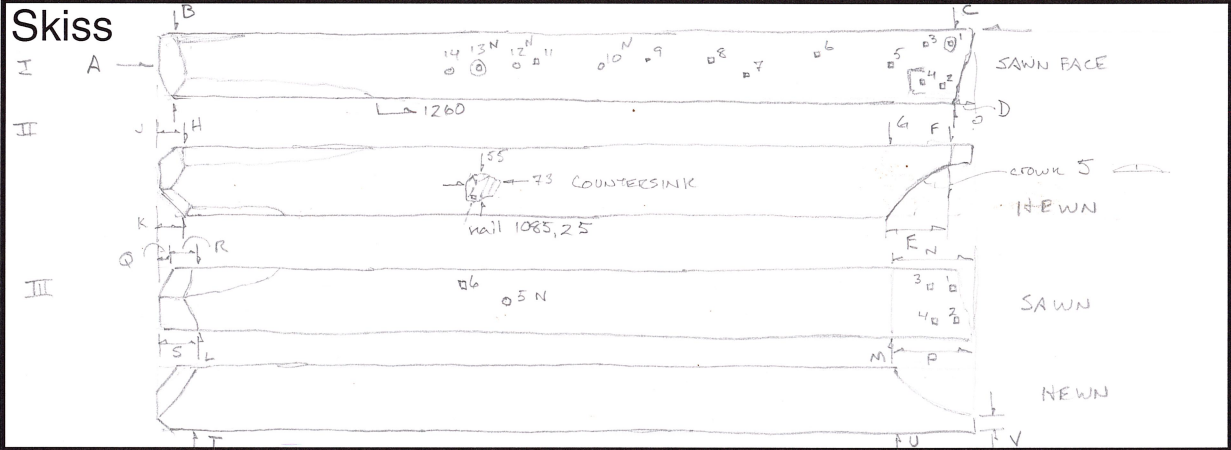 Skiss
B
C
I A 14 13 N 12 N 11 10 N 9 8 7 6 5 3 1 4 2 SAWN FACE
1260 D
II J H G F
55
73 COUNTERSINK crown 5
HEWN
nail 1085,25
K E
Q R N
III 6 5 N 3 1 4 2 SAWN
S L M P
HEWN
T U V